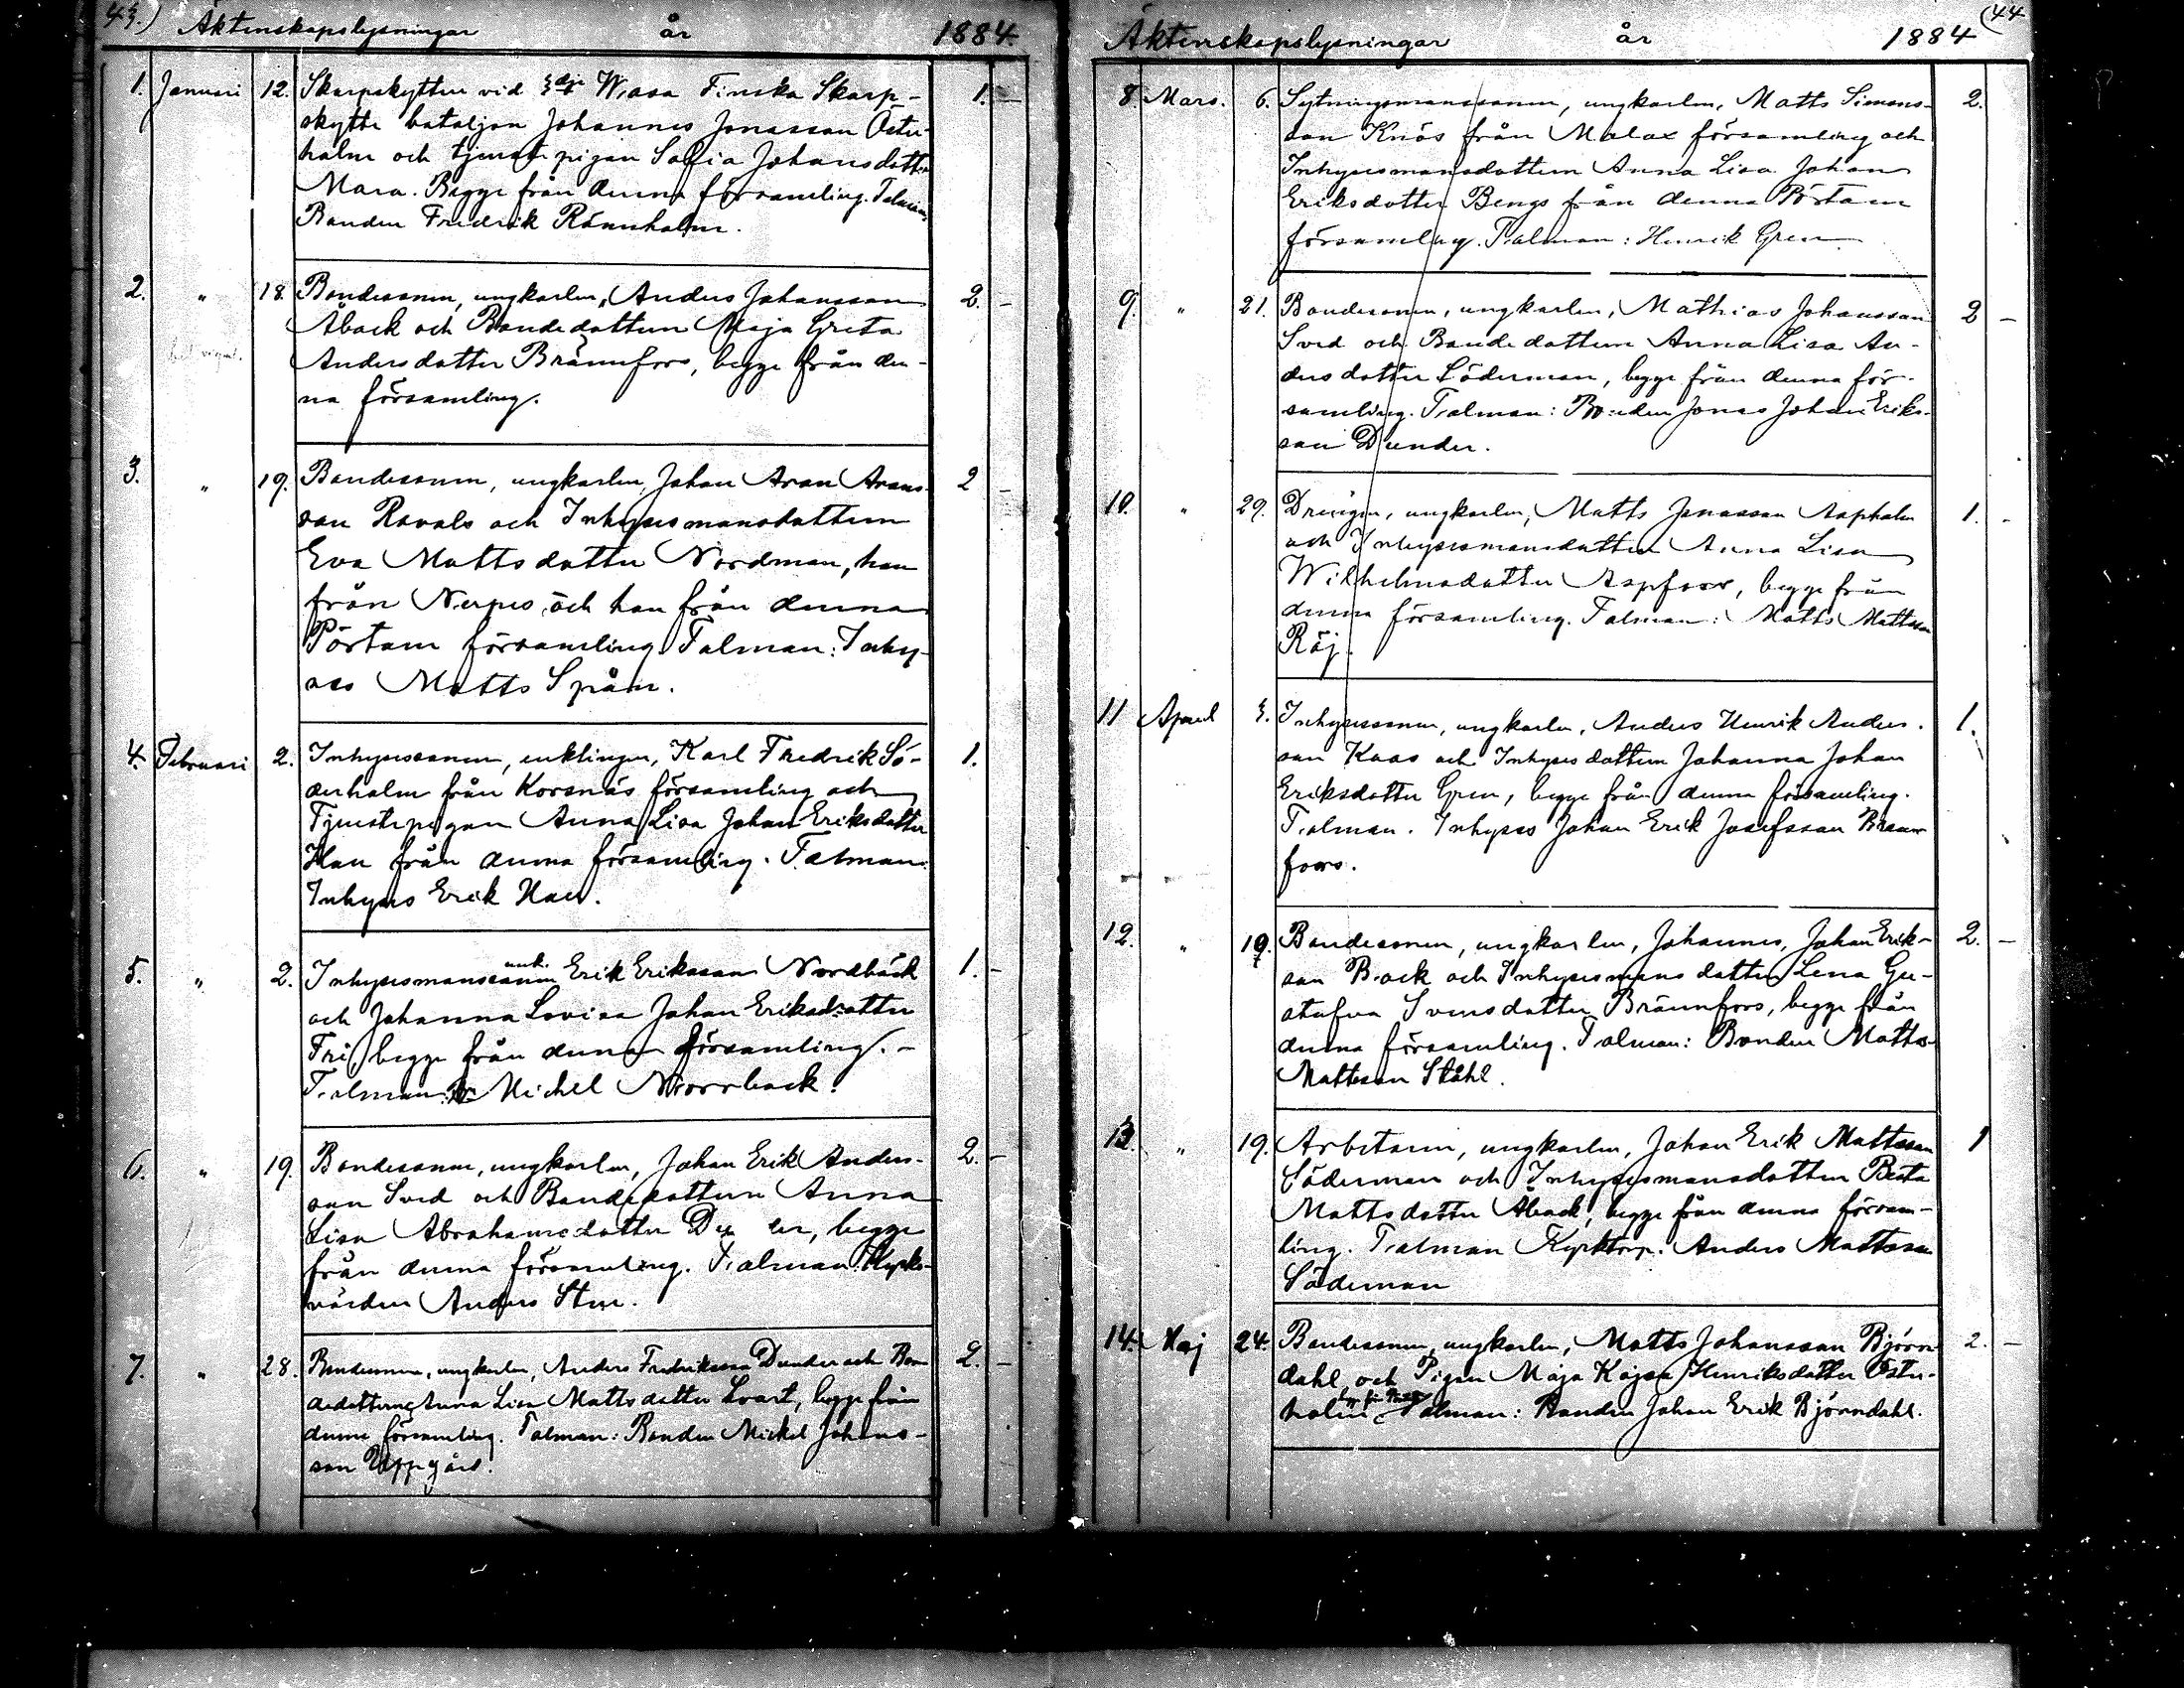 43.) Äktenskapslysningar år 1884.
1. Januari 12. Skarpskytten vid 3dje Wasa Finska Skarp- 1. -
skytte bataljon Johannes Jonasson Öster-
holm och tjenstepigan Sofia Johansdotter
Mara. Begge från denna församling. Talman
Bonden Fredrik Rönnholm.
2. " 18. Bondesonen, ungkarlen, Anders Johansson 2. -
Åback och Bondedottern Maja Greta
Andersdotter Brännfors, begge från den-
na församling.
3. " 19. Bondesonen, ungkarlen, Johan Aron Arons- 2 -
son Ravals och Inhysesmansdottern
Eva Mattsdotter Nordman, han
från Nerpes och hon från denna
Pörtom församling Talman: Inhy-
ses Matts Spåm.
4. Februari 2. Inhysessonen, enklingen, Karl Fredrik Sö- 1.
derholm från Korsnäs församling och
Tjenstepigan Anna Lisa Johan Eriksdotter
Han från denna församling. Talman:
Inhyses Erik Han.
5. " 2. Inhysesmanssonen unk. Erik Eriksson Nordbäck 1. -
och Johanna Lovisa Johan Eriksdotter
Fri, begge från denna församling. -
Talman: Michel Norrback.
6. " 19. Bondesonen, ungkarlen, Johan Erik Anders- 2. -
son Svid och Bondedottern Anna
Lisa Abrahamsdotter begge
från denna församling. Talman: Kyrko-
värden Anders Stor.
7. " 28. Bondesonen, ungkarlen, Anders Fredriksson Dunder och Bon- 2. -
dedottern Anna Lisa Mattsdotter Svart, begge från
denna församling. Talman: Bonden Mickel Johans-
son Uppgård.
Äktenskapslysningar år 1884 (44
8. Mars. 6. Sytningsmanssonen, ungkarlen, Matts Simons- 2.
son Knös från Malax församling och
Inhysesmansdottern Anna Lisa Johan
Eriksdotter Bengs från denna Pörtom
församling. Talman: Henrik Gren
9. " 21. Bondesonen, ungkarlen, Mathias Johansson 2 -
Svid och Bondedottern Anna Lisa An-
dersdotter Söderman, begge från denna för-
samling. Talman: Bonden Jonas Johan Eriks-
son Dunder.
10. " 29. Drengen, ungkarlen, Matts Jonasson Aspholm 1. -
och Inhysesmansdotter Anna Lisa
Wilhelmsdotter Aspfors, begge från
denna församling. Talman: Matts Mattsson
Röj.
11 April 3. Inhysessonen, ungkarlen, Anders Henrik Anders- 1.
son Kaas och Inhysesdottern Johanna Johan
Eriksdotter Gren, begge från denna församling.
Talman. Inhyses Johan Erik Josefsson Bränn-
fors.
12. " 19. Bondesonen, ungkarlen, Johannes, Johan Erik- 2. -
son Back och Inhysesmansdotter Lena Gu-
stafva Svensdotter Brännfors, begge från
denna församling. Talman: Bonden Matts
Mattsson Ståhl.
13. " 19. Arbetaren, ungkarlen, Johan Erik Mattsson 1
Söderman och Inhysesmansdottern Beata
Mattsdotter Åback, begge från denna försam-
ling. Talman Kyrktorp. Anders Mattsson
Söderman
14. Maj 24. Bondesonen, ungkarlen, Matts Johansson Björn- 2. -
dahl och Pigan Maja Kajsa Henriksdotter Öster-
holm Talman: Bonden Johan Erik Björndahl.